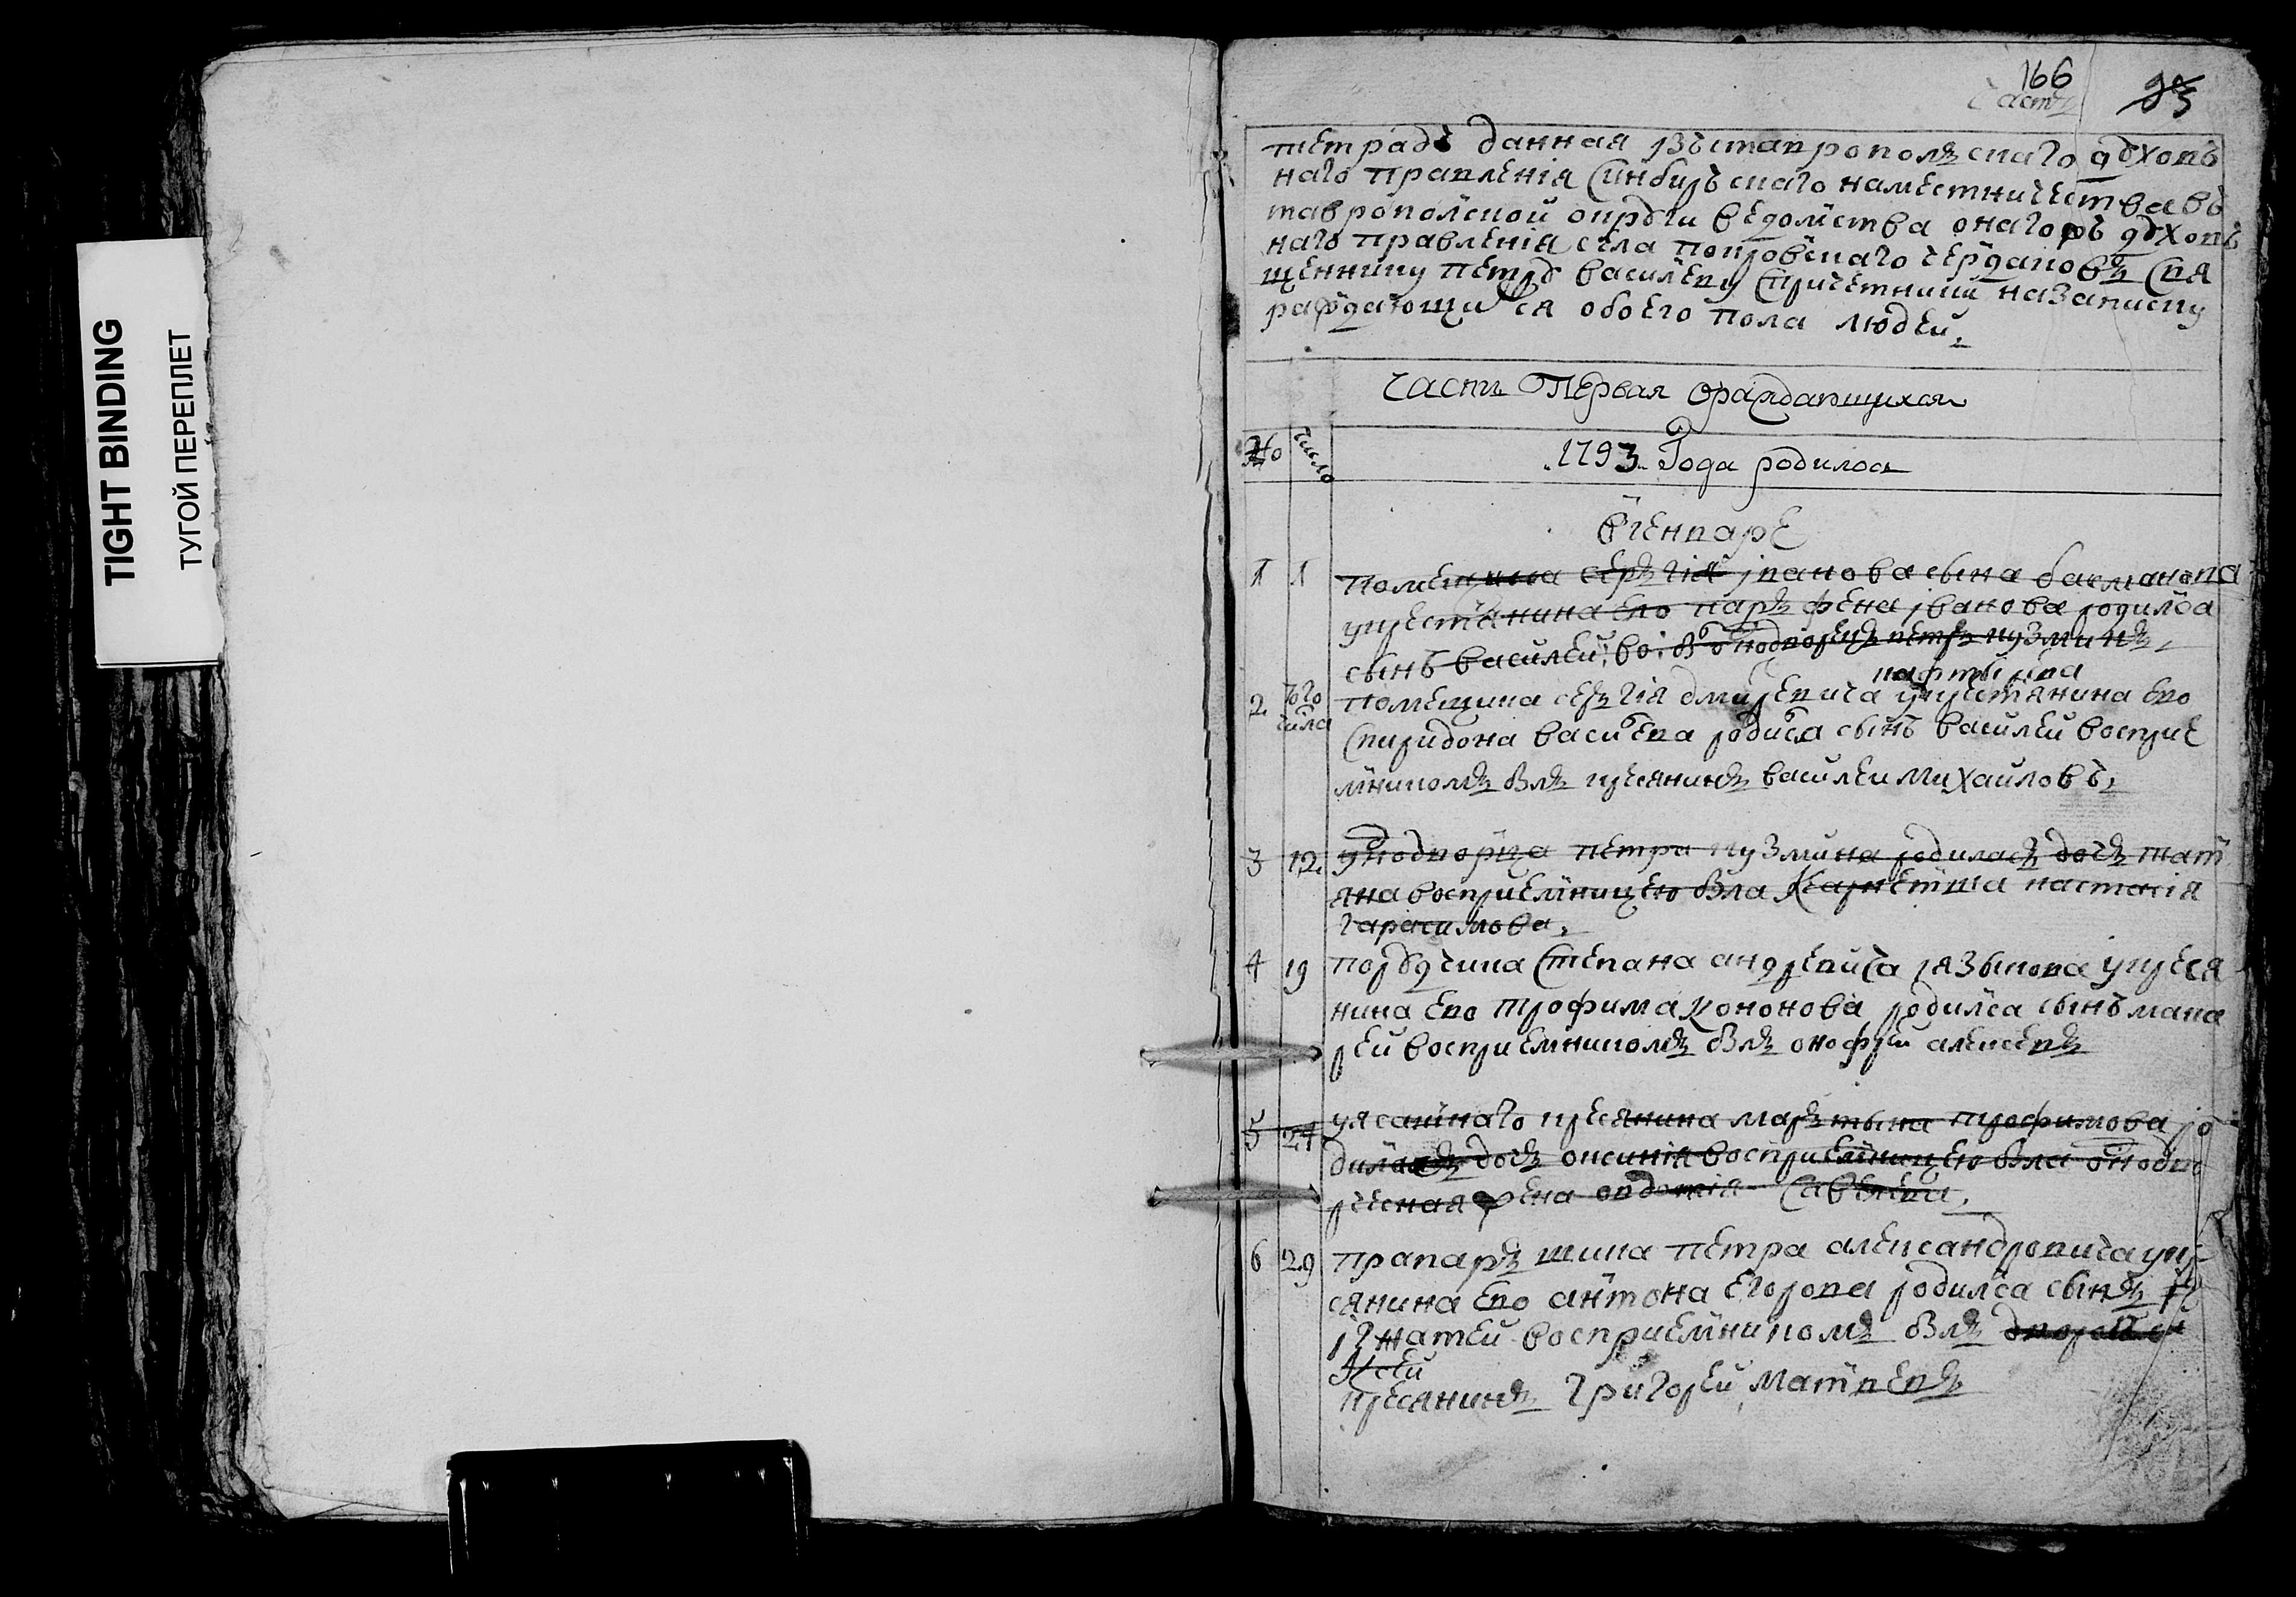 TIGHT BINDING
ТУГОЙ ПЕРЕПЛЕТ
166
тетрадъ данная изъ ставропольскаго духовъ
наго правленія синбирскаго наместничества въ
ставропольской округи ведомства онагожъ духовъ
наго правленія села покровскаго свя
щеннику петру василеву спричетники на записку
раждающихся обоего пола людей
Часть Первая ораждающихся
№ число
1793 Года родилось
Вгенваре
1 1 помещика сергія іванова сына бахметева
укрестянина ево парфена іванова родилса
сынъ василей: во: б: однодворецъ петръ кузминъ
2 того числа помещика сергія дмитревича крестянина ево
спиридона василева родилса сынъ василей восприе
мникомъ былъ кресянинъ василеи михаиловъ
3 12 уоднодворца петра кузмина родилась дочь тат
яна восприемницею была настасія
гарасимова
4 19 порудчика степана андревича языкова укреся
нина ево трофима кононова родилса сынъ мака
рей восприемникомъ былъ онофрей алексевъ
5 24 уясашнаго кресянина мартына трофимова ро
дилась дочь оксинія восприемницею была однодво
рческая жена овдотія савелева
6 29 прапаръщика петра александровича укре
сянина ево антона егорова родилса сынъ
ігнатей восприемникомъ былъ
кресянинъ григорей матвеевъ